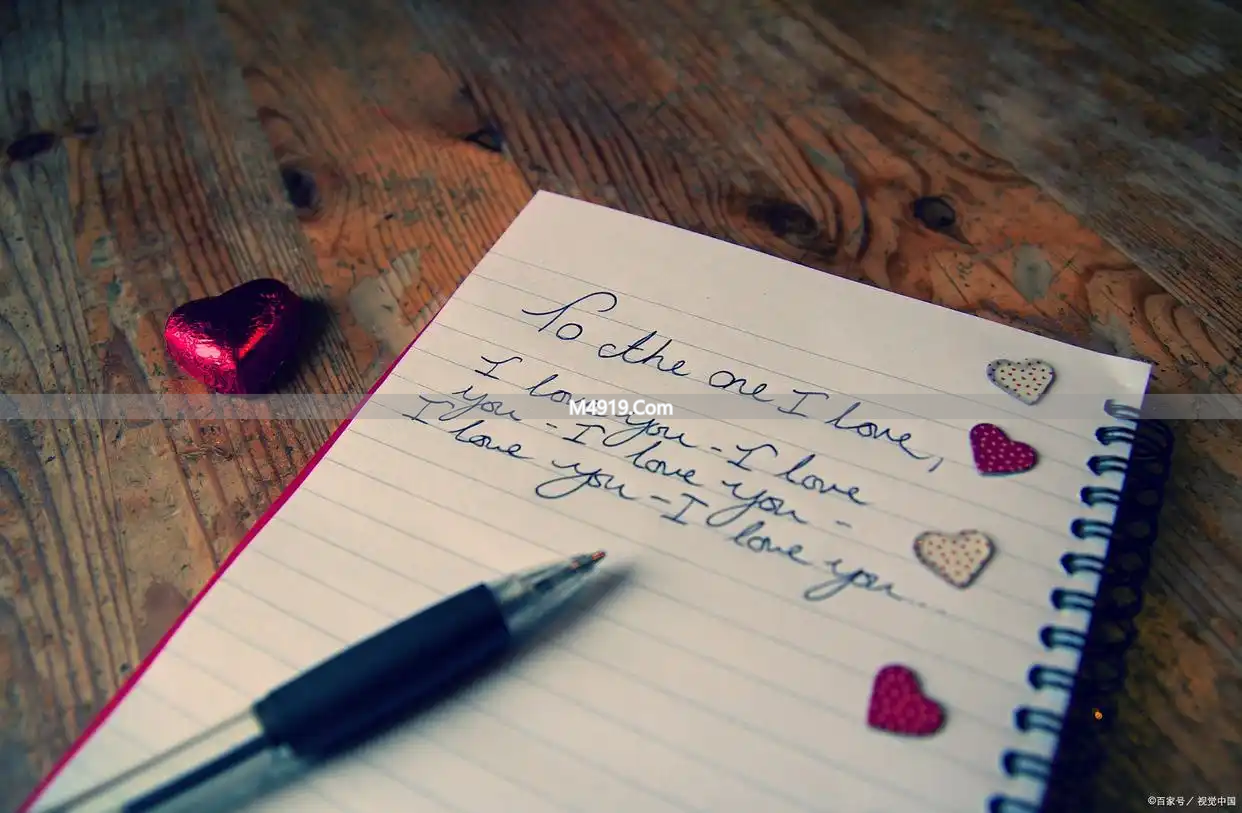 To the one I love,
I love you - I love
you - I love you -
I love you - I love you...
M4919.Com
©百家号／视觉中国